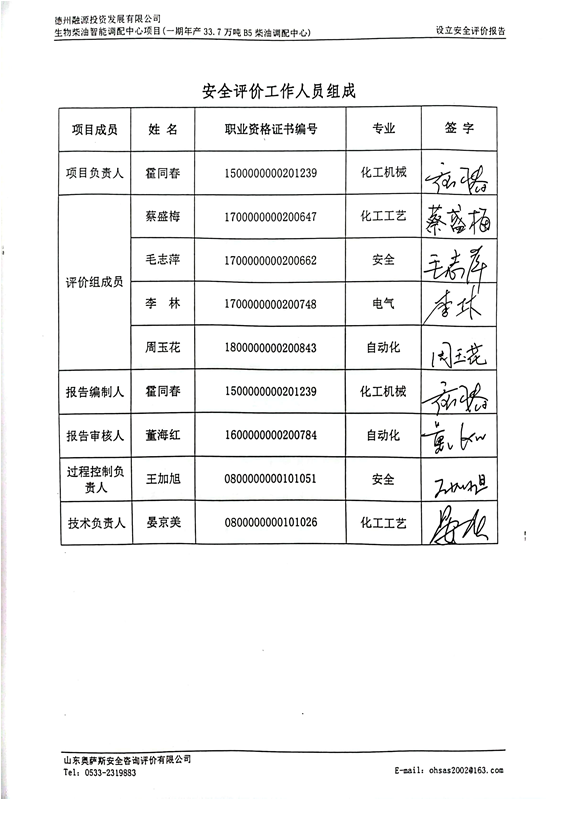 德州融源投资发展有限公司
生物柴油智能调配中心项目(一期年产33.7万吨B5柴油调配中心) 设立安全评价报告
安全评价工作人员组成
项目成员 姓 名 职业资格证书编号 专业 签 字
项目负责人 霍同春 1500000000201239 化工机械
评价组成员 蔡盛梅 1700000000200647 化工工艺 蔡盛梅
毛志萍 1700000000200662 安全 毛志萍
李 林 1700000000200748 电气 李林
周玉花 1800000000200843 自动化 周玉花
报告编制人 霍同春 1500000000201239 化工机械
报告审核人 董海红 1600000000200784 自动化
过程控制负
责人 王加旭 0800000000101051 安全 王加旭
技术负责人 晏京美 0800000000101026 化工工艺
山东奥萨斯安全咨询评价有限公司
Tel: 0533-2319883 E-mail: ohsas2002@163.com